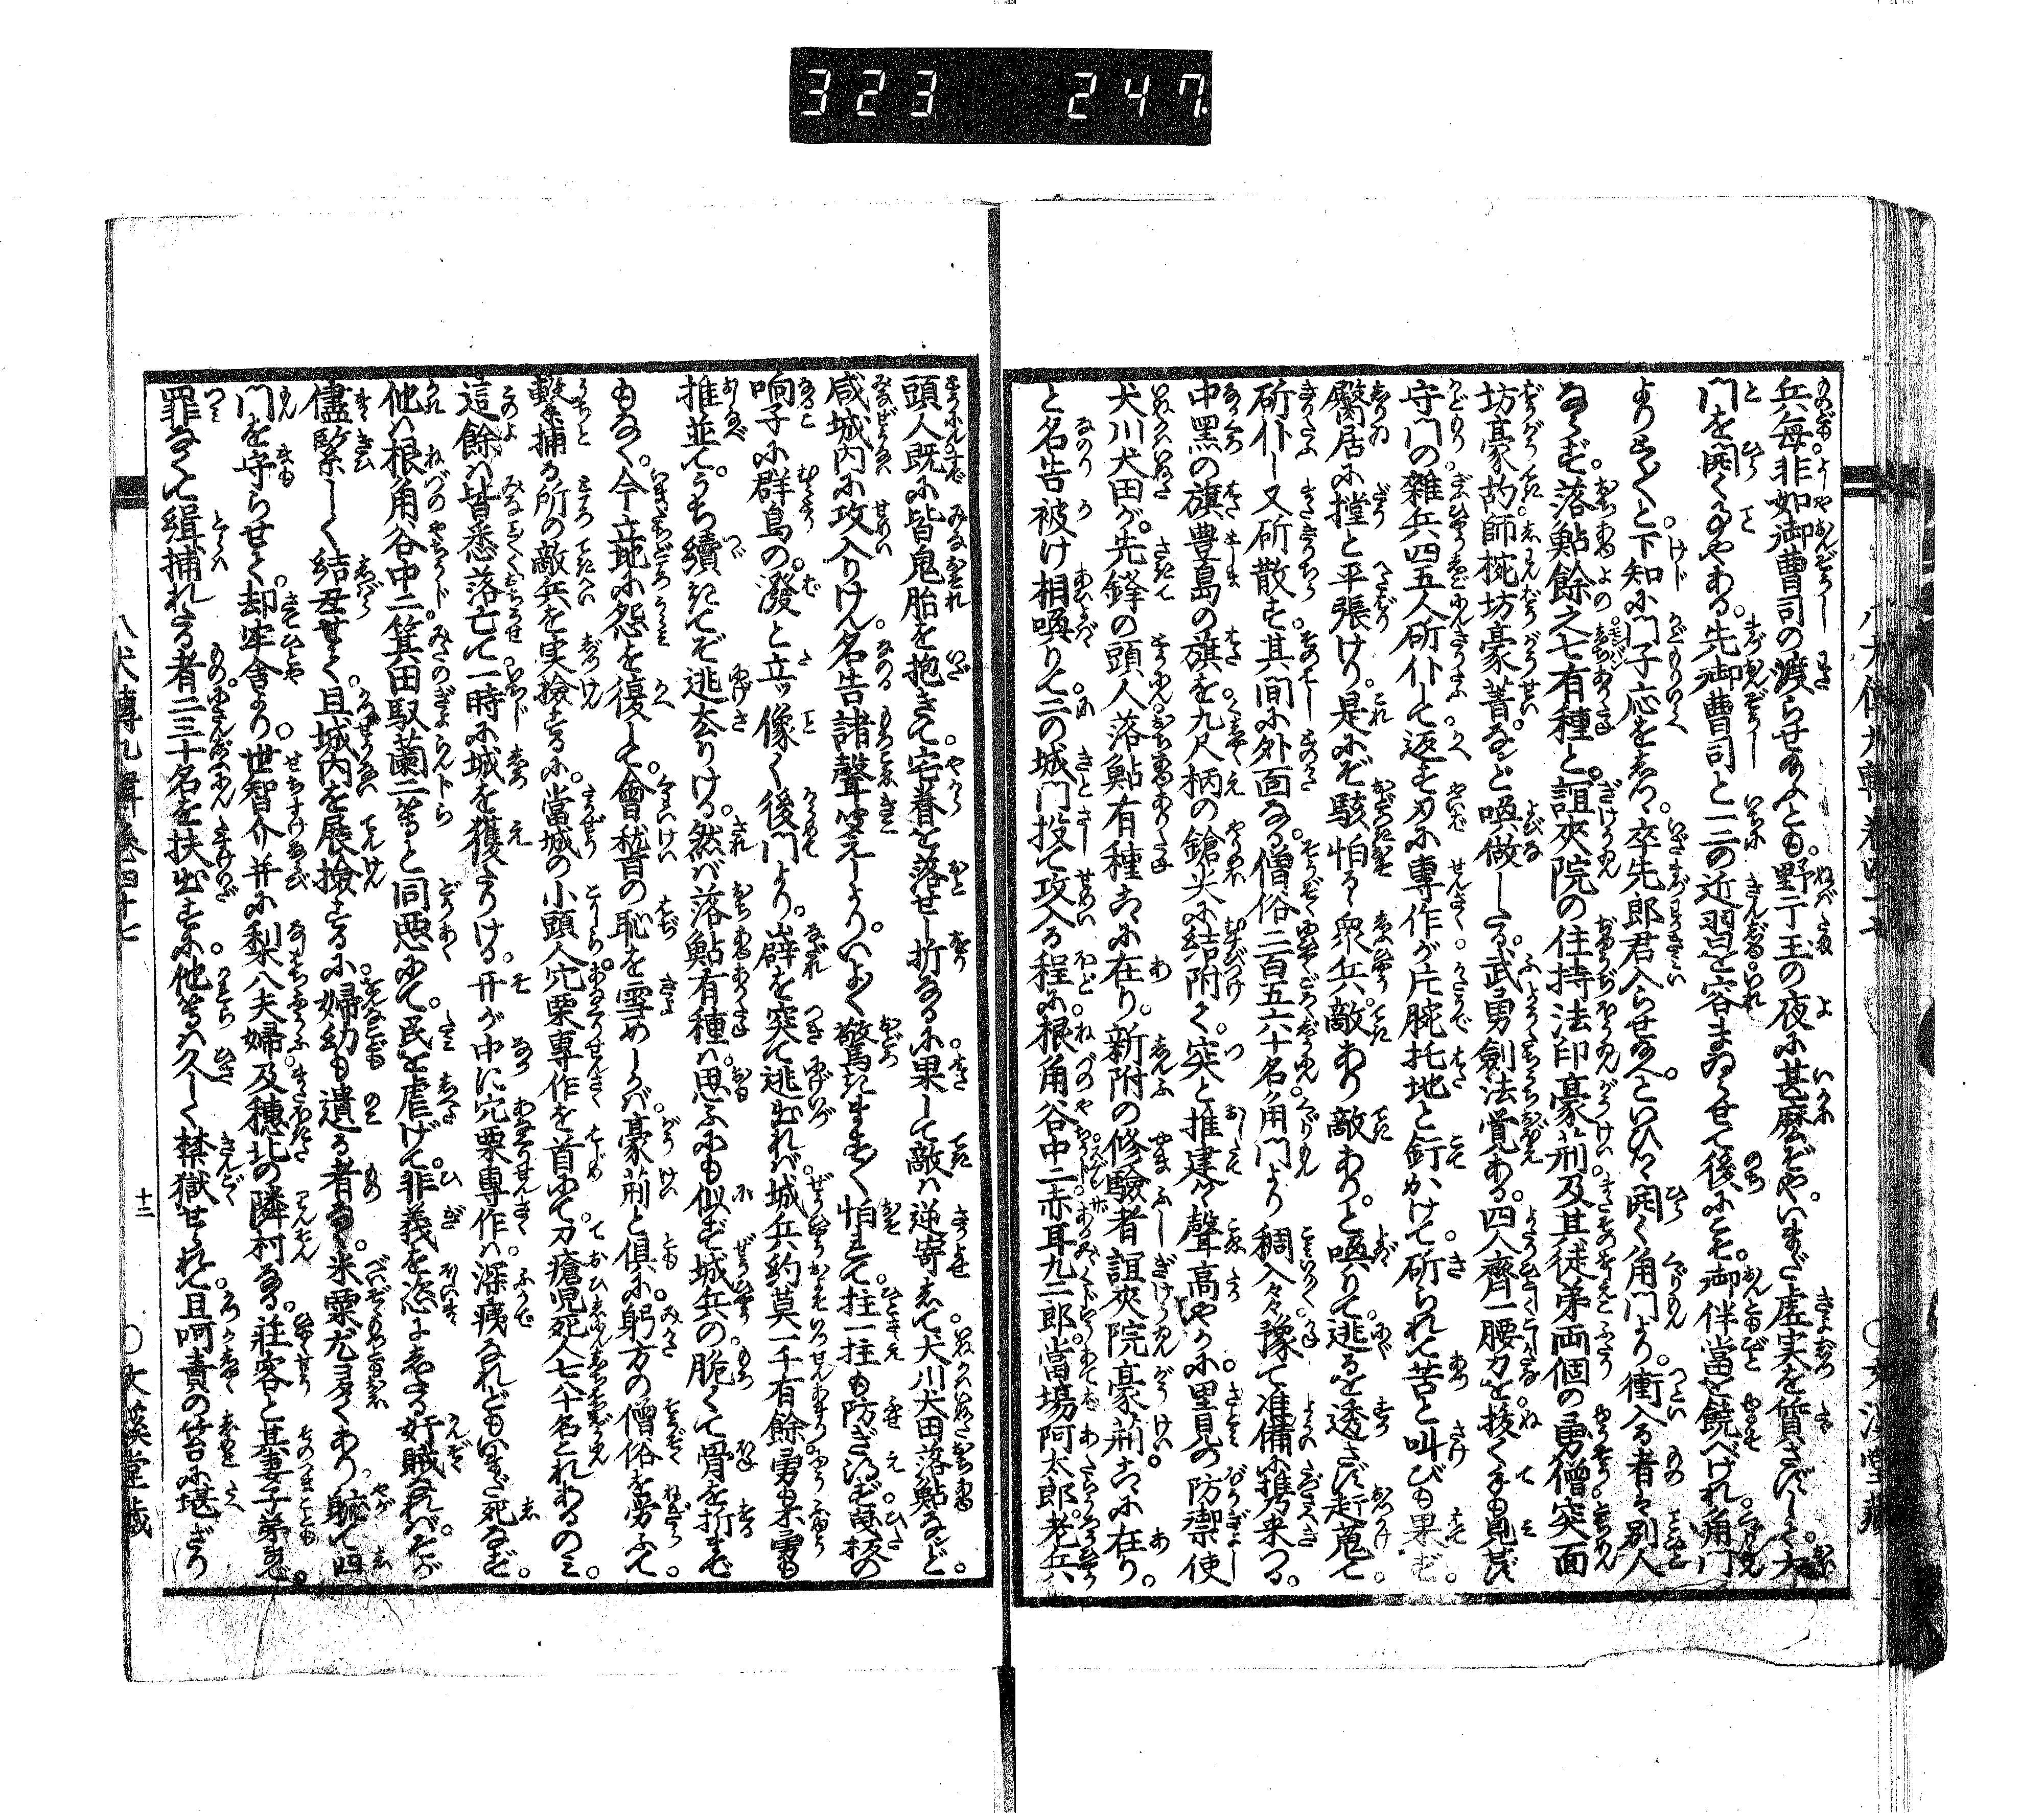 323 247
兵毎非如御曹司の渡らせ給ふとも野干玉の夜に甚麼ぞやいまだ虚実を質さずして大
門を開くことやある。先御曹司と一二の近習を容まゐらせて後にこそ。御伴當を饒べけれ角門
よりとく〳〵と下知に門子応をしつ。卒先郎君入らせ給へといひつゝ開く角門より。衝入る者は別人
ならず。落鮎餘之七有種と。誼夾院の住持法印豪荊及其徒弟両個の勇僧突面
坊豪故師椀坊豪菁などと喚做したる。武勇劍法覚ある。四人齊一腰刀を抜く手も見せず
守門の雑兵四五人斫仆して返す刃に専作が片腕托地と釘かけて斫られて苦と叫びも果ず。
臀居に撞と平張けり。是にぞ駭怕るゝ衆兵。敵あり敵あり。と喚りて。逃るを透さず赶蒐て。
斫仆し又斫散す。其間に外面なる。僧俗二百五六十名。角門より稠入々々豫て准備に携来つる。
中黒の旗豊島の旗を九尺柄の鎗尖に結附て。突と推建つゝ聲高やかに里見の防禦使
犬川犬田が。先鋒の頭人落鮎有種こゝに在り。新附の修驗者誼夾院豪荊こゝに在り。
と名告被け相喚りて二の城門投て攻入る程に。根角谷中二赤耳九二郎。當場阿太郎。老兵
頭人既に皆鬼胎を抱きて宅眷を落せし折なるに果して敵は逆寄して犬川犬田落鮎など。
咸城内に攻入りけん。名告諸聲聞えしより。いよ〳〵驚きまど怕れて。拄一拄も防ぎ得ず夏坂の
响子に群島の。潑と立ッ像く後門より。崩を突て逃出れば城兵約莫一千有餘勇も不勇も
推並て。うち續きてぞ逃去りける。然ば落鮎有種は。思ふにも似ず城兵の。脆くて骨を折ず
もなく。今立地に怨を復して。會稽の恥を雪めしかば。豪荊と倶に躬方の僧俗を労ふて。
撃捕る所の敵兵を実撿するに。當城の小頭人穴栗専作を首にて刀瘡児死人七八十名これあるのミ。
這餘は皆悉落亡て一時に城を獲たりける。开が中に穴栗専作は深痍なれどもいまだ死なず。
他は根角谷中二箕田馭蘭二等と同惡にて。民を虐げて非義を恣にしたる奸賊なれば。なほ
儘緊しく結紮せて。且城内を展撿するに婦幼も遺る者なし。米粟尤夛くあり。軈て四
門を守らせて。却牢舎より。世智介并に梨八夫婦。及穂北の隣村なる。莊客と其妻子弟兄。
罪なくて緝捕れたる者二三十名を扶出すに他等は久しく禁獄せられて。且呵責の笞に堪ざり
八犬傳九輯巻四十七
十二
○文溪堂藏